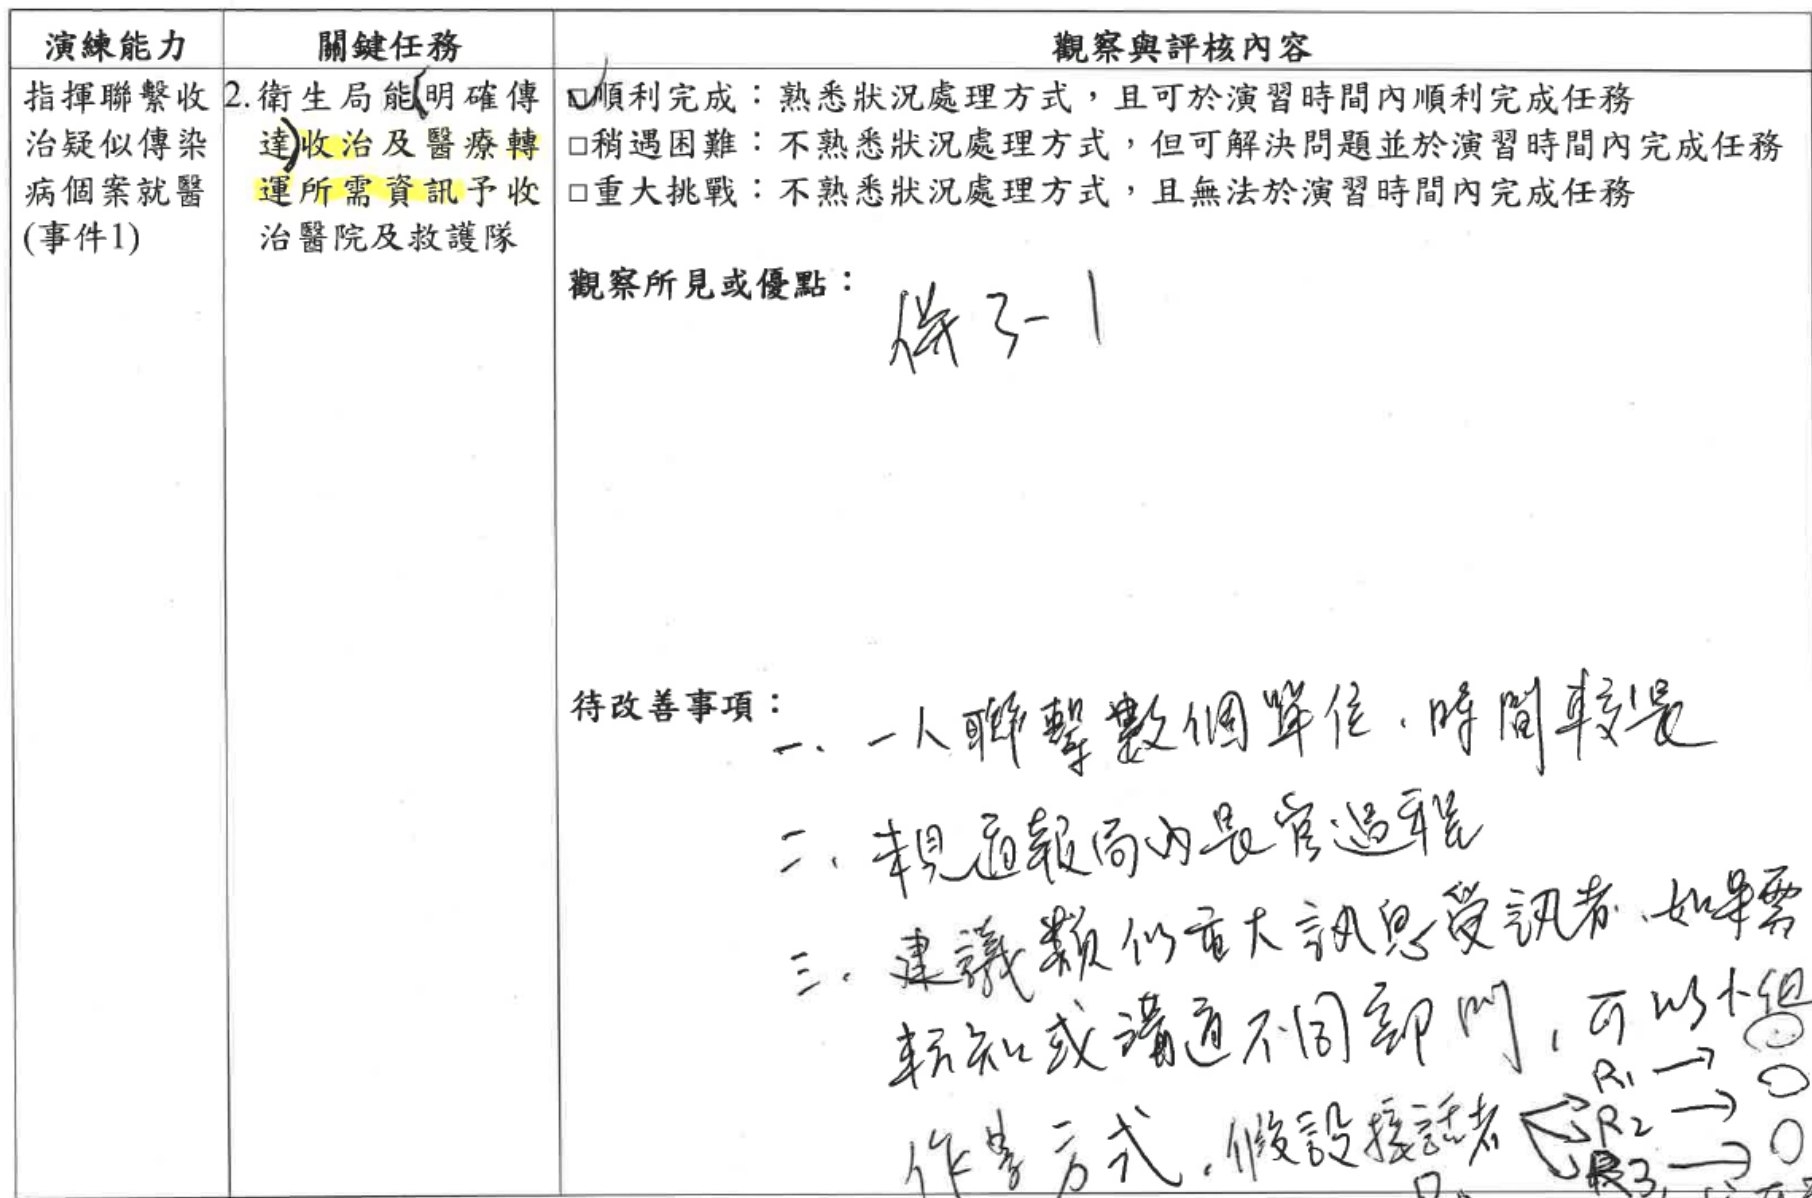 演練能力
關鍵任務
觀察與評核內容
指揮聯繫收
治疑似傳染
病個案就醫
(事件1)
2.衛生局能(明確傳
達)收治及醫療轉
運所需資訊予收
治醫院及救護隊
☑順利完成：熟悉狀況處理方式，且可於演習時間內順利完成任務
□稍遇困難：不熟悉狀況處理方式，但可解決問題並於演習時間內完成任務
□重大挑戰：不熟悉狀況處理方式，且無法於演習時間內完成任務
觀察所見或優點：
3-1
待改善事項：
一、一人聯繫數個單位，時間較長
二、未見通報局內長官過程
三、建議類似重大訊息受訊者、如果需
轉知或溝通不同部門，可以小組
作業方式，假設接話者
R1 → ○
R2 → ○
R3 → ○